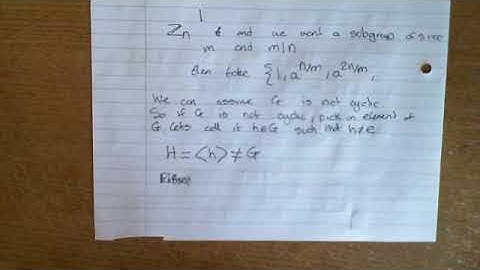 Zn & and we want a subgroup of size
m and m|n
then take {1, a^n/m, a^2n/m,
We can assume G is not cyclic
So if G is not cyclic, pick an element of
G lets call it h∈G such that h≠e
H = <h> ≠ G